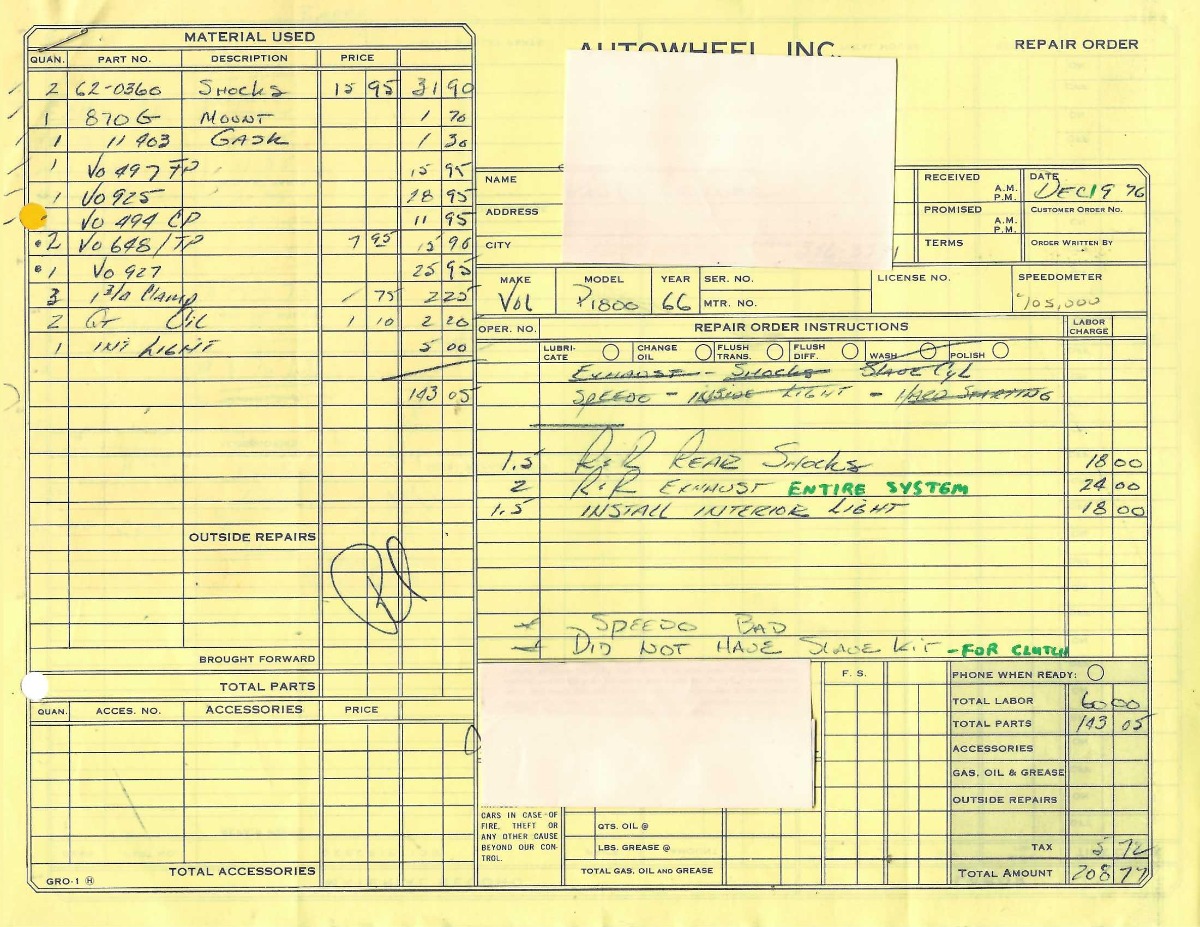 MATERIAL USED
QUAN. PART NO. DESCRIPTION PRICE
2 62-0360 SHOCKS 15 95 31 90
1 870G MOUNT 1 70
1 11 903 GASK 1 30
1 VO 497 TP 15 95
1 VO 925 28 95
VO 494 CP 11 95
2 VO 648/TP 7 95 15 90
1 VO 927 25 95
3 1 3/4 Clamp 75 2 25
2 QT OIL 1 10 2 20
1 INT LIGHT 5 00
143 05
OUTSIDE REPAIRS
BROUGHT FORWARD
TOTAL PARTS
QUAN. ACCES. NO. ACCESSORIES PRICE
TOTAL ACCESSORIES
GRO-1
AUTOWHEEL INC.
REPAIR ORDER
NAME
ADDRESS
CITY
RECEIVED A.M. P.M.
DATE DEC 19 76
PROMISED A.M. P.M.
CUSTOMER ORDER NO.
TERMS
ORDER WRITTEN BY
MAKE VOL
MODEL P1800
YEAR 66
SER. NO.
MTR. NO.
LICENSE NO.
SPEEDOMETER 105,000
OPER. NO. REPAIR ORDER INSTRUCTIONS LABOR CHARGE
LUBRICATE CHANGE OIL FLUSH TRANS. FLUSH DIFF. WASH POLISH
EXHAUST - SHOCKS SLAVE CYL
SPEEDO - INSIDE LIGHT - HARD STARTING
1.5 R&R REAR SHOCKS 18 00
2 R&R EXHAUST ENTIRE SYSTEM 24 00
1.5 INSTALL INTERIOR LIGHT 18 00
SPEEDO BAD
DID NOT HAVE SLAVE KIT - FOR CLUTCH
F. S.
PHONE WHEN READY:
TOTAL LABOR 60 00
TOTAL PARTS 143 05
ACCESSORIES
GAS, OIL & GREASE
OUTSIDE REPAIRS
TAX 5 72
TOTAL AMOUNT 208 77
CARS IN CASE OF
FIRE, THEFT OR
ANY OTHER CAUSE
BEYOND OUR CON-
TROL.
QTS. OIL @
LBS. GREASE @
TOTAL GAS, OIL AND GREASE